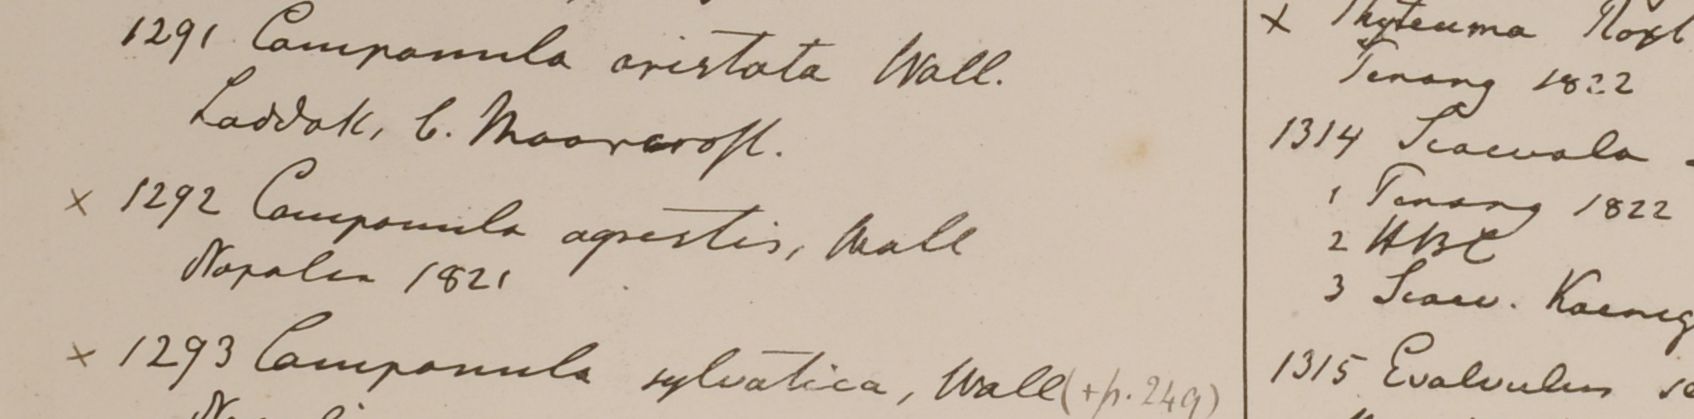 1291 Campanula aristata Wall.
Laddak, C. Moorcroft.
× 1292 Campanula agrestis, Wall
Napalia 1821
× 1293 Campanula sylvatica, Wall (+p. 249)
× Phyteuma Roxb
Penang 1822
1314 Scaevola
1 Penang 1822
2 HBC
3 Scaev. Koenig
1315 Evolvulus